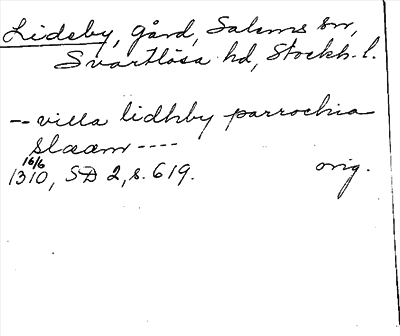 Lideby, gård, Salems sn,
Svartlösa hd, Stockh. l.
-- villa lidhby parrochia
Slæem ----
16/6
1310, SD 2, s. 619. orig.